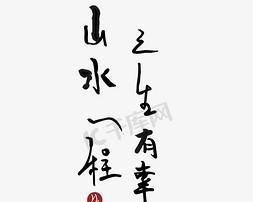 山水一程
三生有幸
千库网